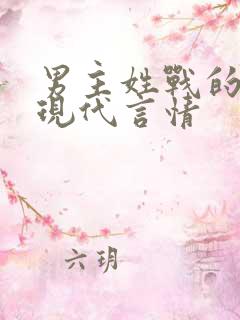 男主姓戰的
現代言情
六玥